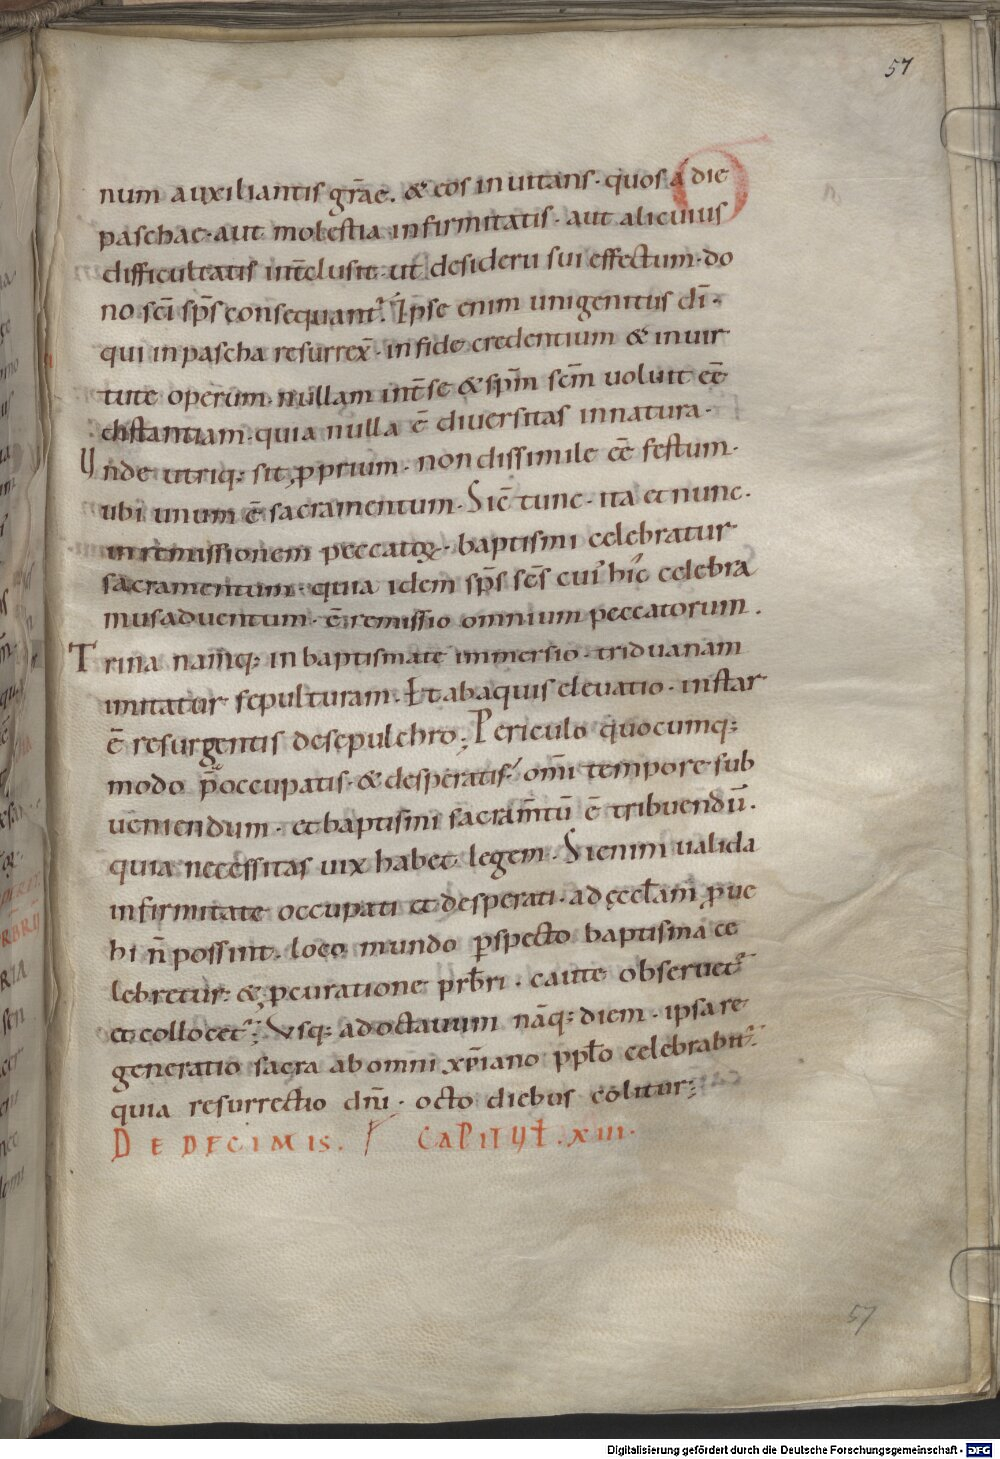 57
num auxiliantis gr̄ae. & eos inuitans· quos a die
paschae· aut molestia infirmitatis· aut alicuius
difficultatis int̄clusit· ut desiderii sui effectum· do
no sc̄i sp̄s consequant᷑. Ipse enim unigenitus dī·
qui in pascha resurrex̄· in fide credentium & in uir
tute operum· nullam int̄ se & sp̄m sc̄m uoluit eē
distantiam· quia nulla ē diuersitas in natura·
Unde utriq; sit ꝓprium· non dissimile eē festum·
ubi unum ē sacramentum· Sic̄ tunc· ita et nunc·
in remissionem peccatoꝝ· baptismi celebratur
sacramentum· quia idem sp̄s sc̄s cui᷒ hic celebra
mus aduentum· ē remissio omnium peccatorum.
Trina namq; in baptismate immersio· triduanam
imitatur sepulturam· Et ab aquis eleuatio· instar
ē resurgentis de sepulchro; Periculo quocumq;
modo p̄occupatis· & desperatis· om̄i tempore sub
ueniendum· et baptismi sacram̄tū ē tribuendū.
quia necessitas uix habet legem· Si enim ualida
infirmitate occupati et desperati· ad ęccl̄am ꝓue
hi n̄ possint· loco mundo ꝑspecto baptisma ce
lebretur· & ꝓcuratione prb̄ri· caute obseruet᷑
et collocet᷑; Usq; ad octauum nāq; diem· ipsa re
generatio sacra ab omni xp̄iano ppl̄o celebrabit᷑
quia resurrectio dn̄i· octo diebus colitur;
DE DECIMIS. CAPITUL̄. XIII.
57
Digitalisierung gefördert durch die Deutsche Forschungsgemeinschaft - DFG